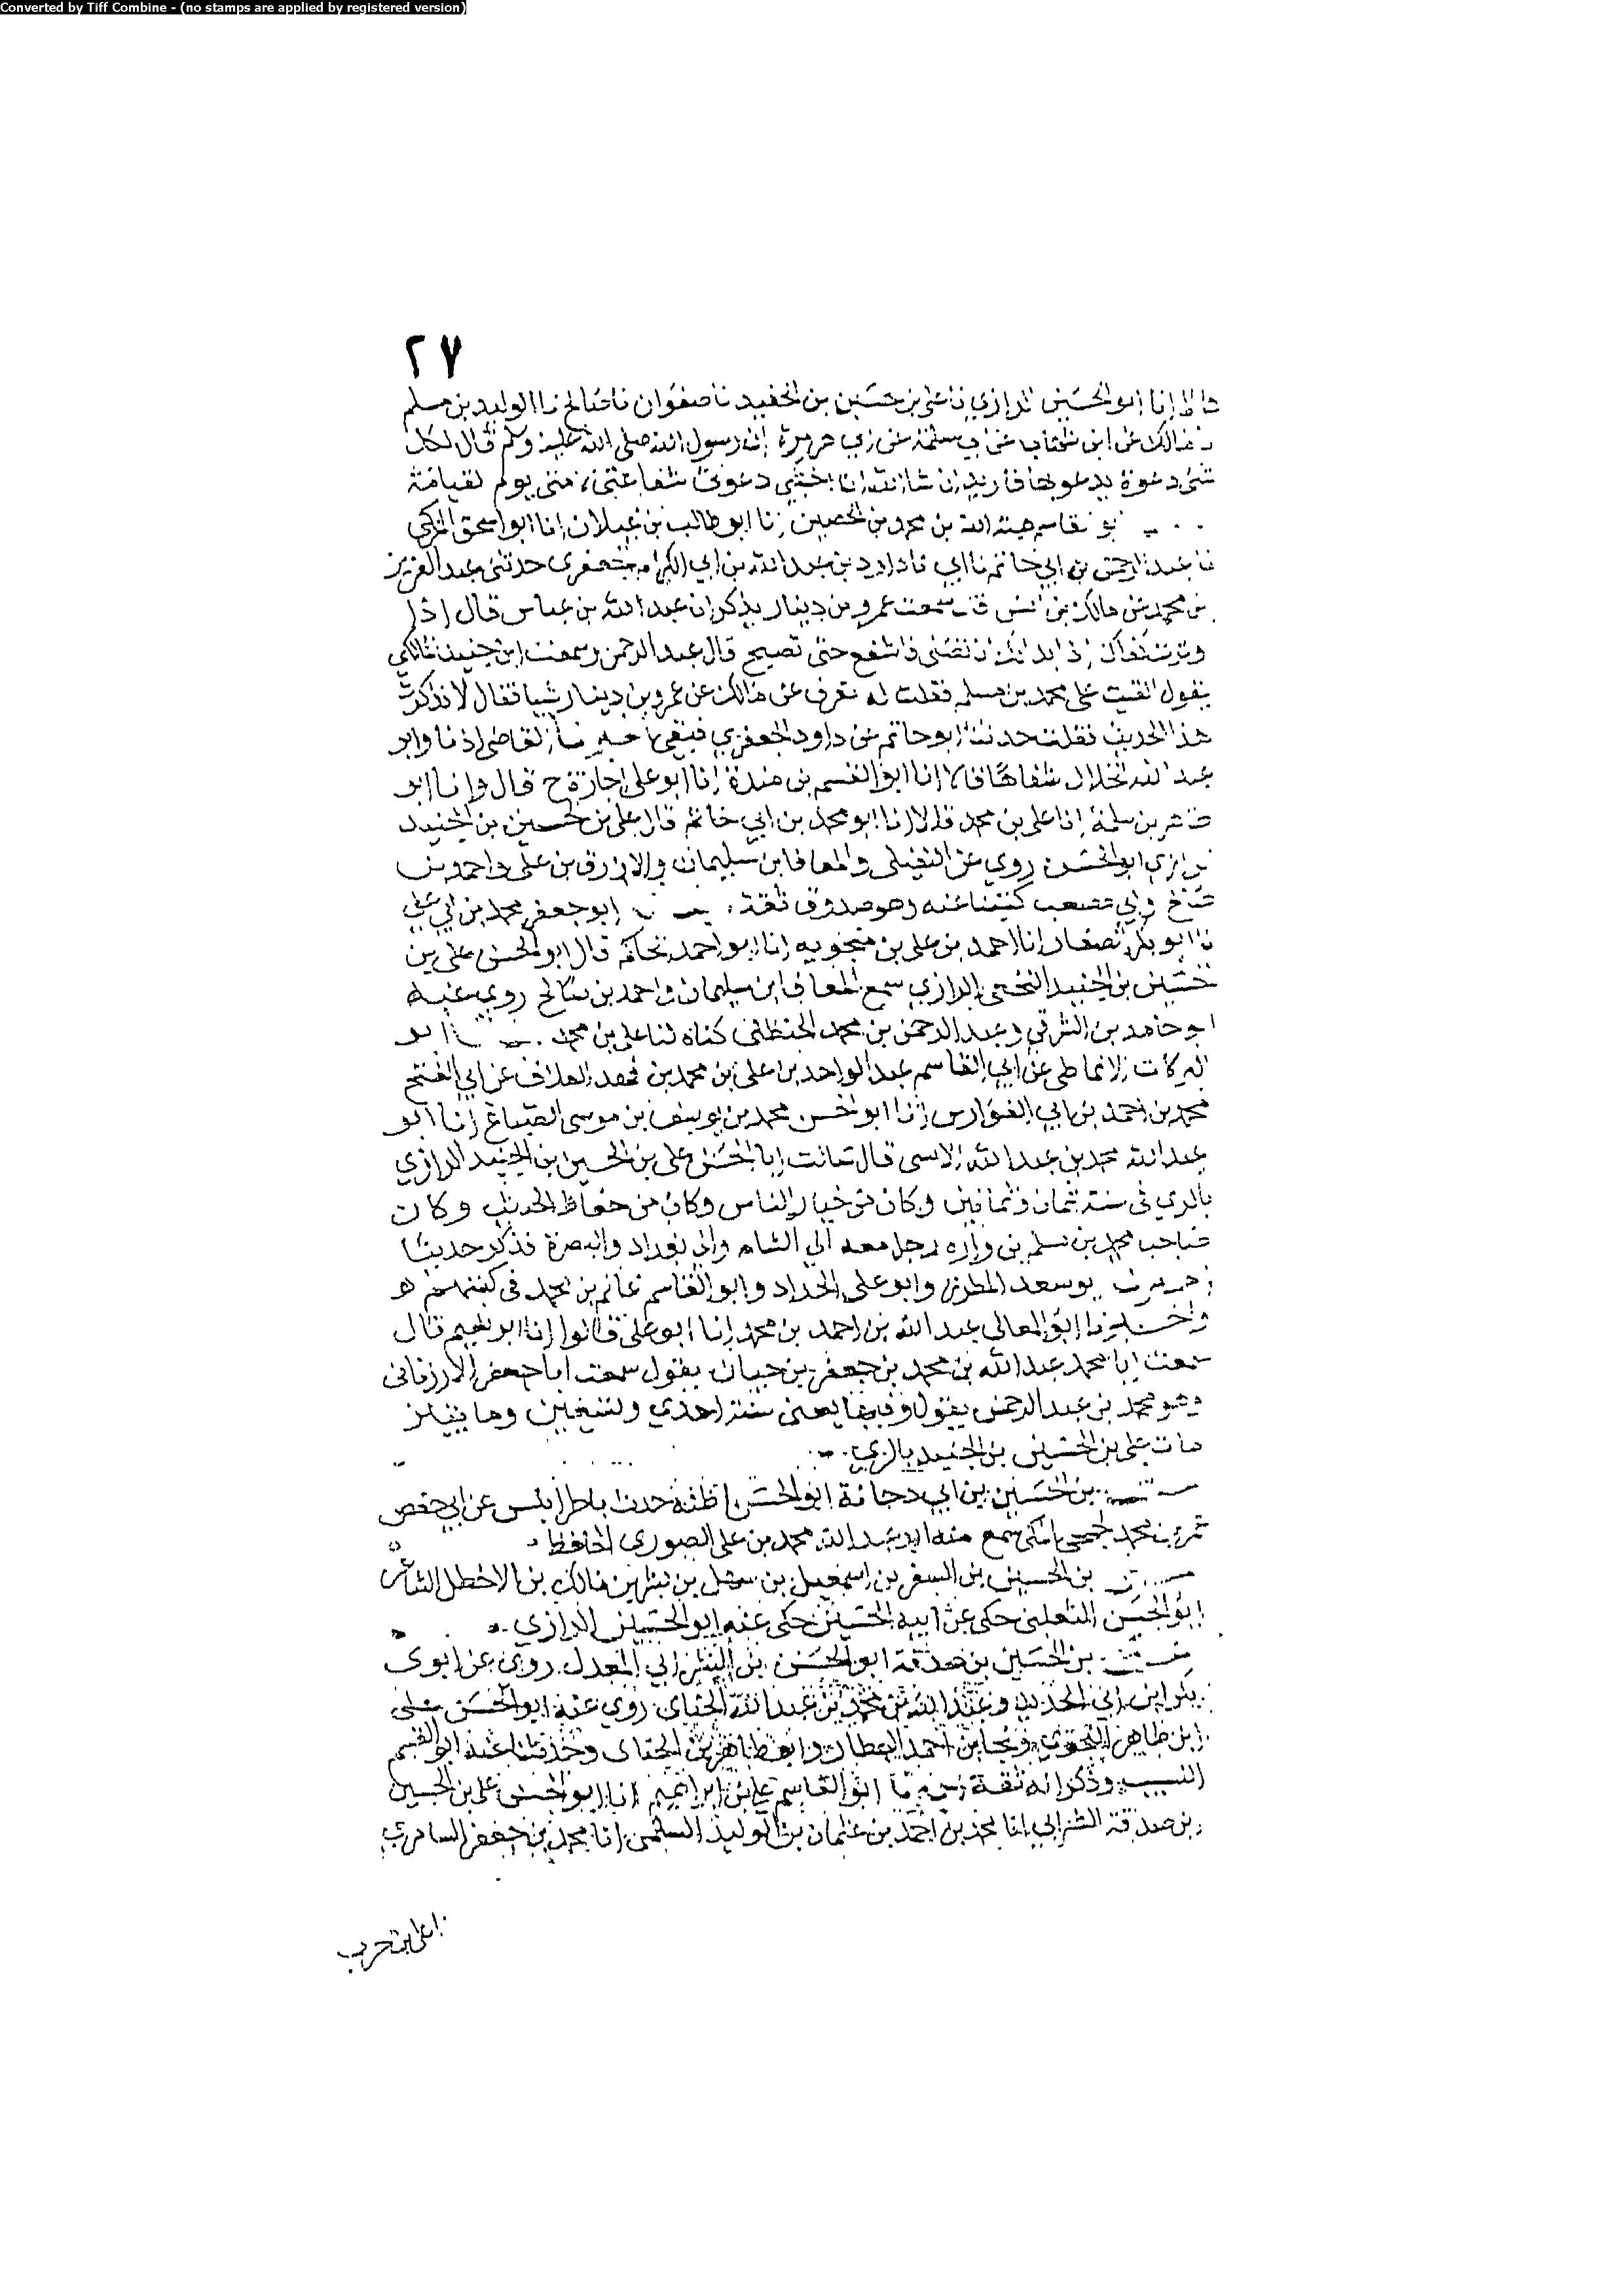 Converted by Tiff Combine - (no stamps are applied by registered version)
٢٧
انا ابو الحسين الرازي نا علي بن حسين بن الجنيد نا صفوان نا صالح نا الوليد بن مسلم
مالك عن ابن شهاب عن ابي سلمة عن ابي هريرة ان رسول الله صلى الله عليه وسلم قال لكل
دعوة يدعو بها فاريد ان شا الله ان اختبي دعوتي شفاعتي يوم القيامة
هبة الله بن محمد بن الحصين انا ابو طالب بن غيلان انا ابو اسحق المزكي
نا عبد الرحمن بن ابي حاتم نا ابي نا داود بن عبد الله بن ابي الكرام الجعفري حدثني عبد العزيز
بن محمد عن مالك بن انس قال سمعت عمرو بن دينار يذكر ان عبد الله بن عباس قال اذا
فاشفع حتى تصبح قال عبد الرحمن وسمعت ابن جنيد المالكي
يقول محمد بن مسلم فقلت له تعرف عن مالك عن عمرو بن دينار شيا فقال لا فذكرت
هذا الحديث فقلت حدثنا ابو حاتم عن داود الجعفري فبقي القاضي اذنا وابو
عبد الله الخلال شفاها قالا انا ابو القسم بن مندة انا ابو علي اجازة ح قال وانا ابو
طاهر بن سلمة انا علي بن محمد قالا انا ابو محمد بن ابي حاتم قال علي بن الحسين بن الجنيد
الرازي ابو الحسن روي عن النفيلي والمعافا بن سليمان والازرق بن علي واحمد بن
صالح وابي مصعب كتبنا عنه وهو صدوق ثقة ابو جعفر محمد بن ابي علي
نا ابو بكر الصفار انا احمد بن علي بن منجويه انا ابو احمد الحاكم قال ابو الحسن علي بن
الحسين بن الجنيد النخعي الرازي سمع المعافى بن سليمان واحمد بن صالح روي عنه
ابو حامد بن الشرقي وعبد الرحمن بن محمد الحنظلي كناه لنا علي بن محمد ابو
البركات الانماطي عن ابي القاسم عبد الواحد بن علي بن محمد بن فهد العلاف عن ابي الفتح
محمد بن احمد بن ابي الفوارس انا ابو الحسن محمد بن يوسف بن موسى الصباغ انا ابو
عبد الله محمد بن عبد الله قال ابا الحسن علي بن الحسين بن الجنيد الرازي
بالري في سنة ثمان وثمانين وكان من خيار الناس وكان من حفاظ الحديث وكان
صاحب محمد بن مسلم بن واره رحل معه الى الشام والى بغداد والبصرة فذكر حديثا
ابو سعد المطرز وابو علي الحداد وابو القاسم غانم بن محمد في كتبهم
واخبرنا ابو المعالي عبد الله بن احمد بن محمد انا ابو علي قالوا انا ابو نعيم قال
سمعت ابا محمد عبد الله بن محمد بن جعفر بن حيان يقول سمعت ابا جعفر الارزناني
وهو محمد بن عبد الرحمن يقول وفيها يعني سنة احدي وتسعين وما يتين
مات علي بن الحسين بن الجنيد بالري
بن الحسين بن ابي دجانة ابو الحسن اظنه حدث باطرابلس عن ابي حفص
عمر بن محمد الجمحي المكي سمع منه ابو عبد الله محمد بن علي الصوري الحافظ
بن الحسين بن السفر بن اسمعيل بن سهل بن بشر بن مالك بن الاخطل الشاعر
ابو الحسن التغلبي حكى عن ابيه الحسين حكى عنه ابو الحسين الرازي
بن الحسين بن صدقة ابو الحسن بن الشرابي المعدل روي عن ابوي
بكر ابن ابي الحديد وعبد الله بن محمد بن عبد الله الحنائي روي عنه ابو الحسن علي
ابن طاهر النحوي ونجا بن احمد العطار وابو طاهر بن الحنائي وحدثنا عنه ابو القسم
النسيب وذكر انه ثقة ابو القاسم علي بن ابراهيم انا ابو الحسن علي بن الحسين
بن صدقة الشرابي انا محمد بن احمد بن عثمان بن الوليد السلمي انا محمد بن جعفر السامري
نا علي بن حرب